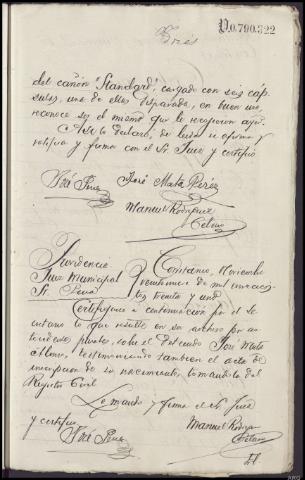 P.0.790.322
Brás
del cañón "Standard", cargado con seis cáp-
sulas, una de ellas disparada, en buen uso,
reconoce ser el mismo que le recogieron ayer.
Así lo declara, de leída se afirma y
ratifica y firma con el Sr Juez y certifico
José Pena José Mata Pérez
Manuel Rodríguez
Providencia
Juez Municipal
Sr. Pena
Cortiano, Noviembre
veintiuno de mil novecien-
tos treinta y uno
Certifíquese a continuación por el Se-
cretario lo que resulte en su archivo por an-
tecedentes penales, sobre el detenido José Mata
testimoniando también el acta de
inscripción de su nacimiento, tomándola del
Registro Civil
Lo manda y firma el Sr Juez
y certifico
José Pena Manuel Rodríguez